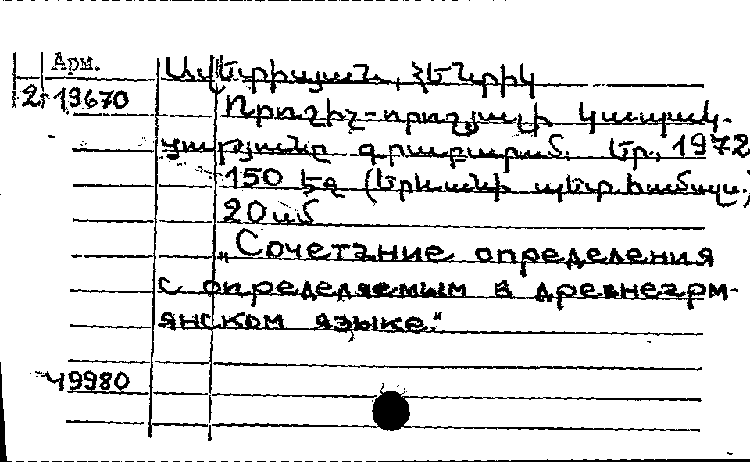 Арм.
Ավետիսյան, Հենրիկ
2г 19670
Որոշիչ-որոշյալի կապակ-
ցությունը գրաբարում. Եր., 1972
150 էջ (Երևանի պետ. համալս.)
20 սմ
„Сочетание определения
с определяемым в древнеарм-
янском языке."
49980